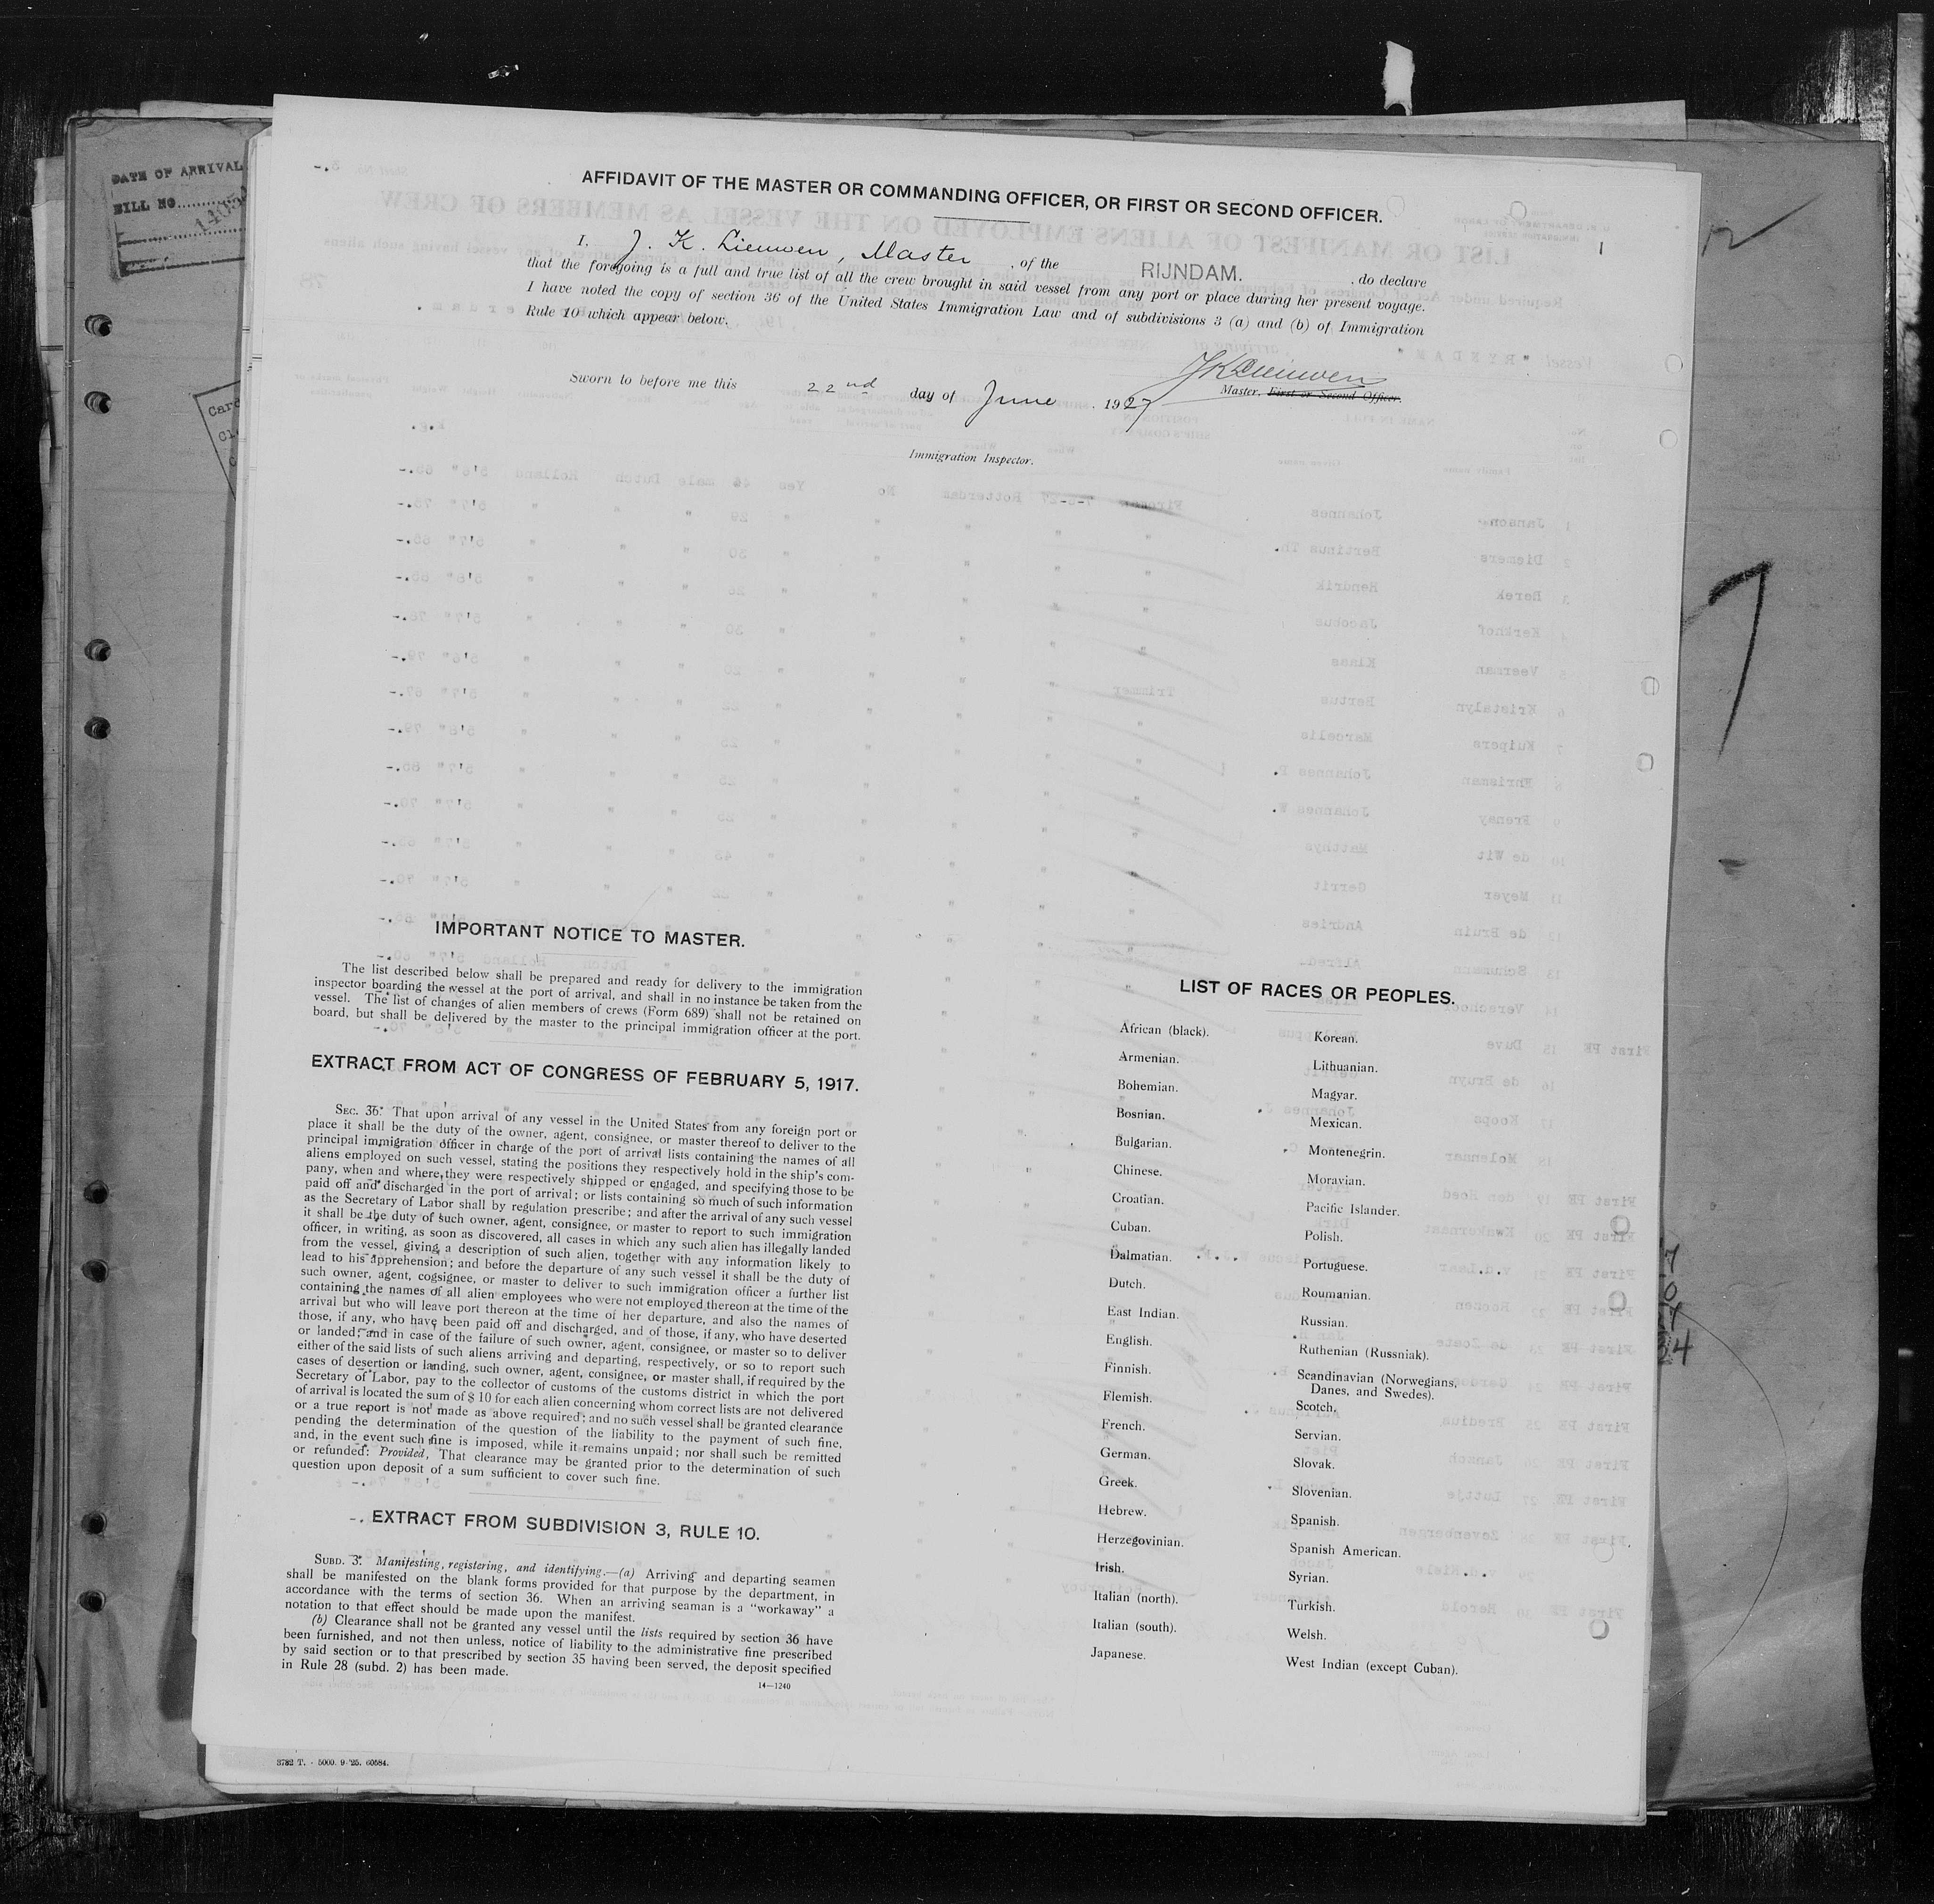 DATE OF ARRIVAL
BILL NO.
AFFIDAVIT OF THE MASTER OR COMMANDING OFFICER, OR FIRST OR SECOND OFFICER.
I, J. K. Lieuwen, Master, of the RIJNDAM. , do declare
that the foregoing is a full and true list of all the crew brought in said vessel from any port or place during her present voyage.
I have noted the copy of section 36 of the United States Immigration Law and of subdivisions 3 (a) and (b) of Immigration
Rule 10 which appear below.
JKLieuwen
Master, First or Second Officer.
Sworn to before me this 22nd day of June , 1927
Immigration Inspector.
IMPORTANT NOTICE TO MASTER.
The list described below shall be prepared and ready for delivery to the immigration
inspector boarding the vessel at the port of arrival, and shall in no instance be taken from the
vessel. The list of changes of alien members of crews (Form 689) shall not be retained on
board, but shall be delivered by the master to the principal immigration officer at the port.
EXTRACT FROM ACT OF CONGRESS OF FEBRUARY 5, 1917.
SEC. 36. That upon arrival of any vessel in the United States from any foreign port or
place it shall be the duty of the owner, agent, consignee, or master thereof to deliver to the
principal immigration officer in charge of the port of arrival lists containing the names of all
aliens employed on such vessel, stating the positions they respectively hold in the ship's com-
pany, when and where they were respectively shipped or engaged, and specifying those to be
paid off and discharged in the port of arrival; or lists containing so much of such information
as the Secretary of Labor shall by regulation prescribe; and after the arrival of any such vessel
it shall be the duty of such owner, agent, consignee, or master to report to such immigration
officer, in writing, as soon as discovered, all cases in which any such alien has illegally landed
from the vessel, giving a description of such alien, together with any information likely to
lead to his apprehension; and before the departure of any such vessel it shall be the duty of
such owner, agent, cogsignee, or master to deliver to such immigration officer a further list
containing the names of all alien employees who were not employed thereon at the time of the
arrival but who will leave port thereon at the time of her departure, and also the names of
those, if any, who have been paid off and discharged, and of those, if any, who have deserted
or landed; and in case of the failure of such owner, agent, consignee, or master so to deliver
either of the said lists of such aliens arriving and departing, respectively, or so to report such
cases of desertion or landing, such owner, agent, consignee, or master shall, if required by the
Secretary of Labor, pay to the collector of customs of the customs district in which the port
of arrival is located the sum of $ 10 for each alien concerning whom correct lists are not delivered
or a true report is not made as above required; and no such vessel shall be granted clearance
pending the determination of the question of the liability to the payment of such fine,
and, in the event such fine is imposed, while it remains unpaid; nor shall such be remitted
or refunded: Provided, That clearance may be granted prior to the determination of such
question upon deposit of a sum sufficient to cover such fine.
EXTRACT FROM SUBDIVISION 3, RULE 10.
SUBD. 3. Manifesting, registering, and identifying.—(a) Arriving and departing seamen
shall be manifested on the blank forms provided for that purpose by the department, in
accordance with the terms of section 36. When an arriving seaman is a "workaway" a
notation to that effect should be made upon the manifest.
(b) Clearance shall not be granted any vessel until the lists required by section 36 have
been furnished, and not then unless, notice of liability to the administrative fine prescribed
by said section or to that prescribed by section 35 having been served, the deposit specified
in Rule 28 (subd. 2) has been made.
14—1240
3782 T. - 5000. 9-'25. 60584.
LIST OF RACES OR PEOPLES.
African (black).
Armenian.
Bohemian.
Bosnian.
Bulgarian.
Chinese.
Croatian.
Cuban.
Dalmatian.
Dutch.
East Indian.
English.
Finnish.
Flemish.
French.
German.
Greek.
Hebrew.
Herzegovinian.
Irish.
Italian (north).
Italian (south).
Japanese.
Korean.
Lithuanian.
Magyar.
Mexican.
Montenegrin.
Moravian.
Pacific Islander.
Polish.
Portuguese.
Roumanian.
Russian.
Ruthenian (Russniak).
Scandinavian (Norwegians,
Danes, and Swedes).
Scotch.
Servian.
Slovak.
Slovenian.
Spanish.
Spanish American.
Syrian.
Turkish.
Welsh.
West Indian (except Cuban).